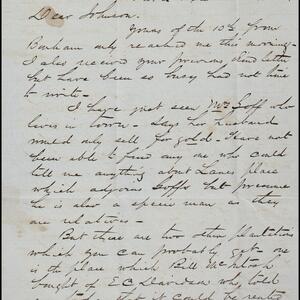 Dear Johnson.
Yours of the 10th from
only reached me this morning.
I also received your previous kind letter
but have been so busy had not time
to write.
I have just seen Mrs Goff who
lives in town. Says her husband
would only sell for gold. I have not
been able to find any one who could
tell me anything about Lanes place
which adjoins Goffs but presume
he is also a specie man as they
are relatives.
But there are two other plantations
which you can probably get. one
is the place which Bill McIntosh
bought of E C Davidson who told
that it could be rented